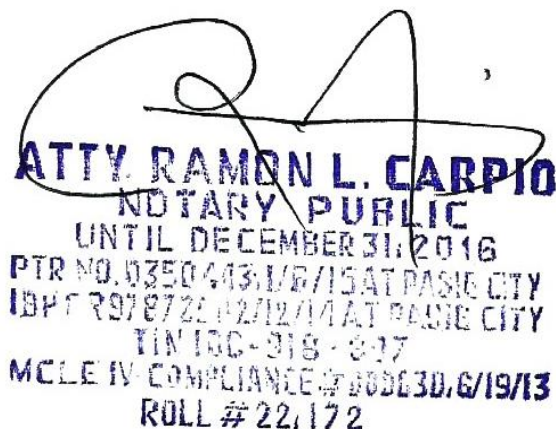 ATTY. RAMON L. CARPIO
NOTARY PUBLIC
UNTIL DECEMBER 31, 2016
PTR NO. 0350443; 1/6/15 AT PASIG CITY
12/12/14 AT PASIG CITY
TIN
MCLE IV COMPLIANCE # 6/19/13
ROLL # 22,172